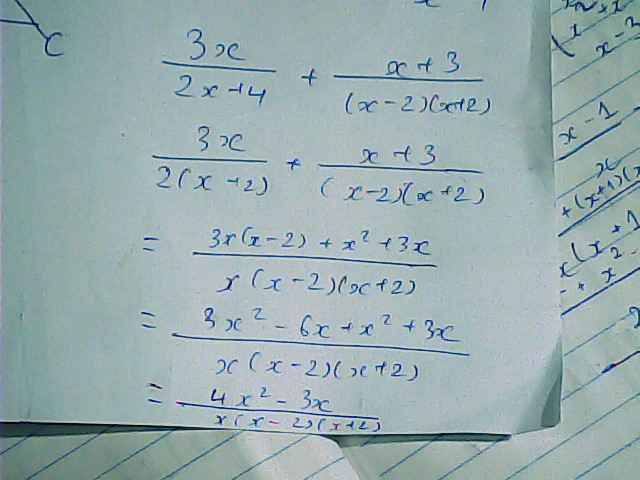 C
3x/(2x+4) + (x+3)/((x-2)(x+2))
3x/(2(x+2)) + (x+3)/((x-2)(x+2))
= (3x(x-2) + x² + 3x)/(x(x-2)(x+2))
= (3x² - 6x + x² + 3x)/(x(x-2)(x+2))
= (4x² - 3x)/(x(x-2)(x+2))
x-1